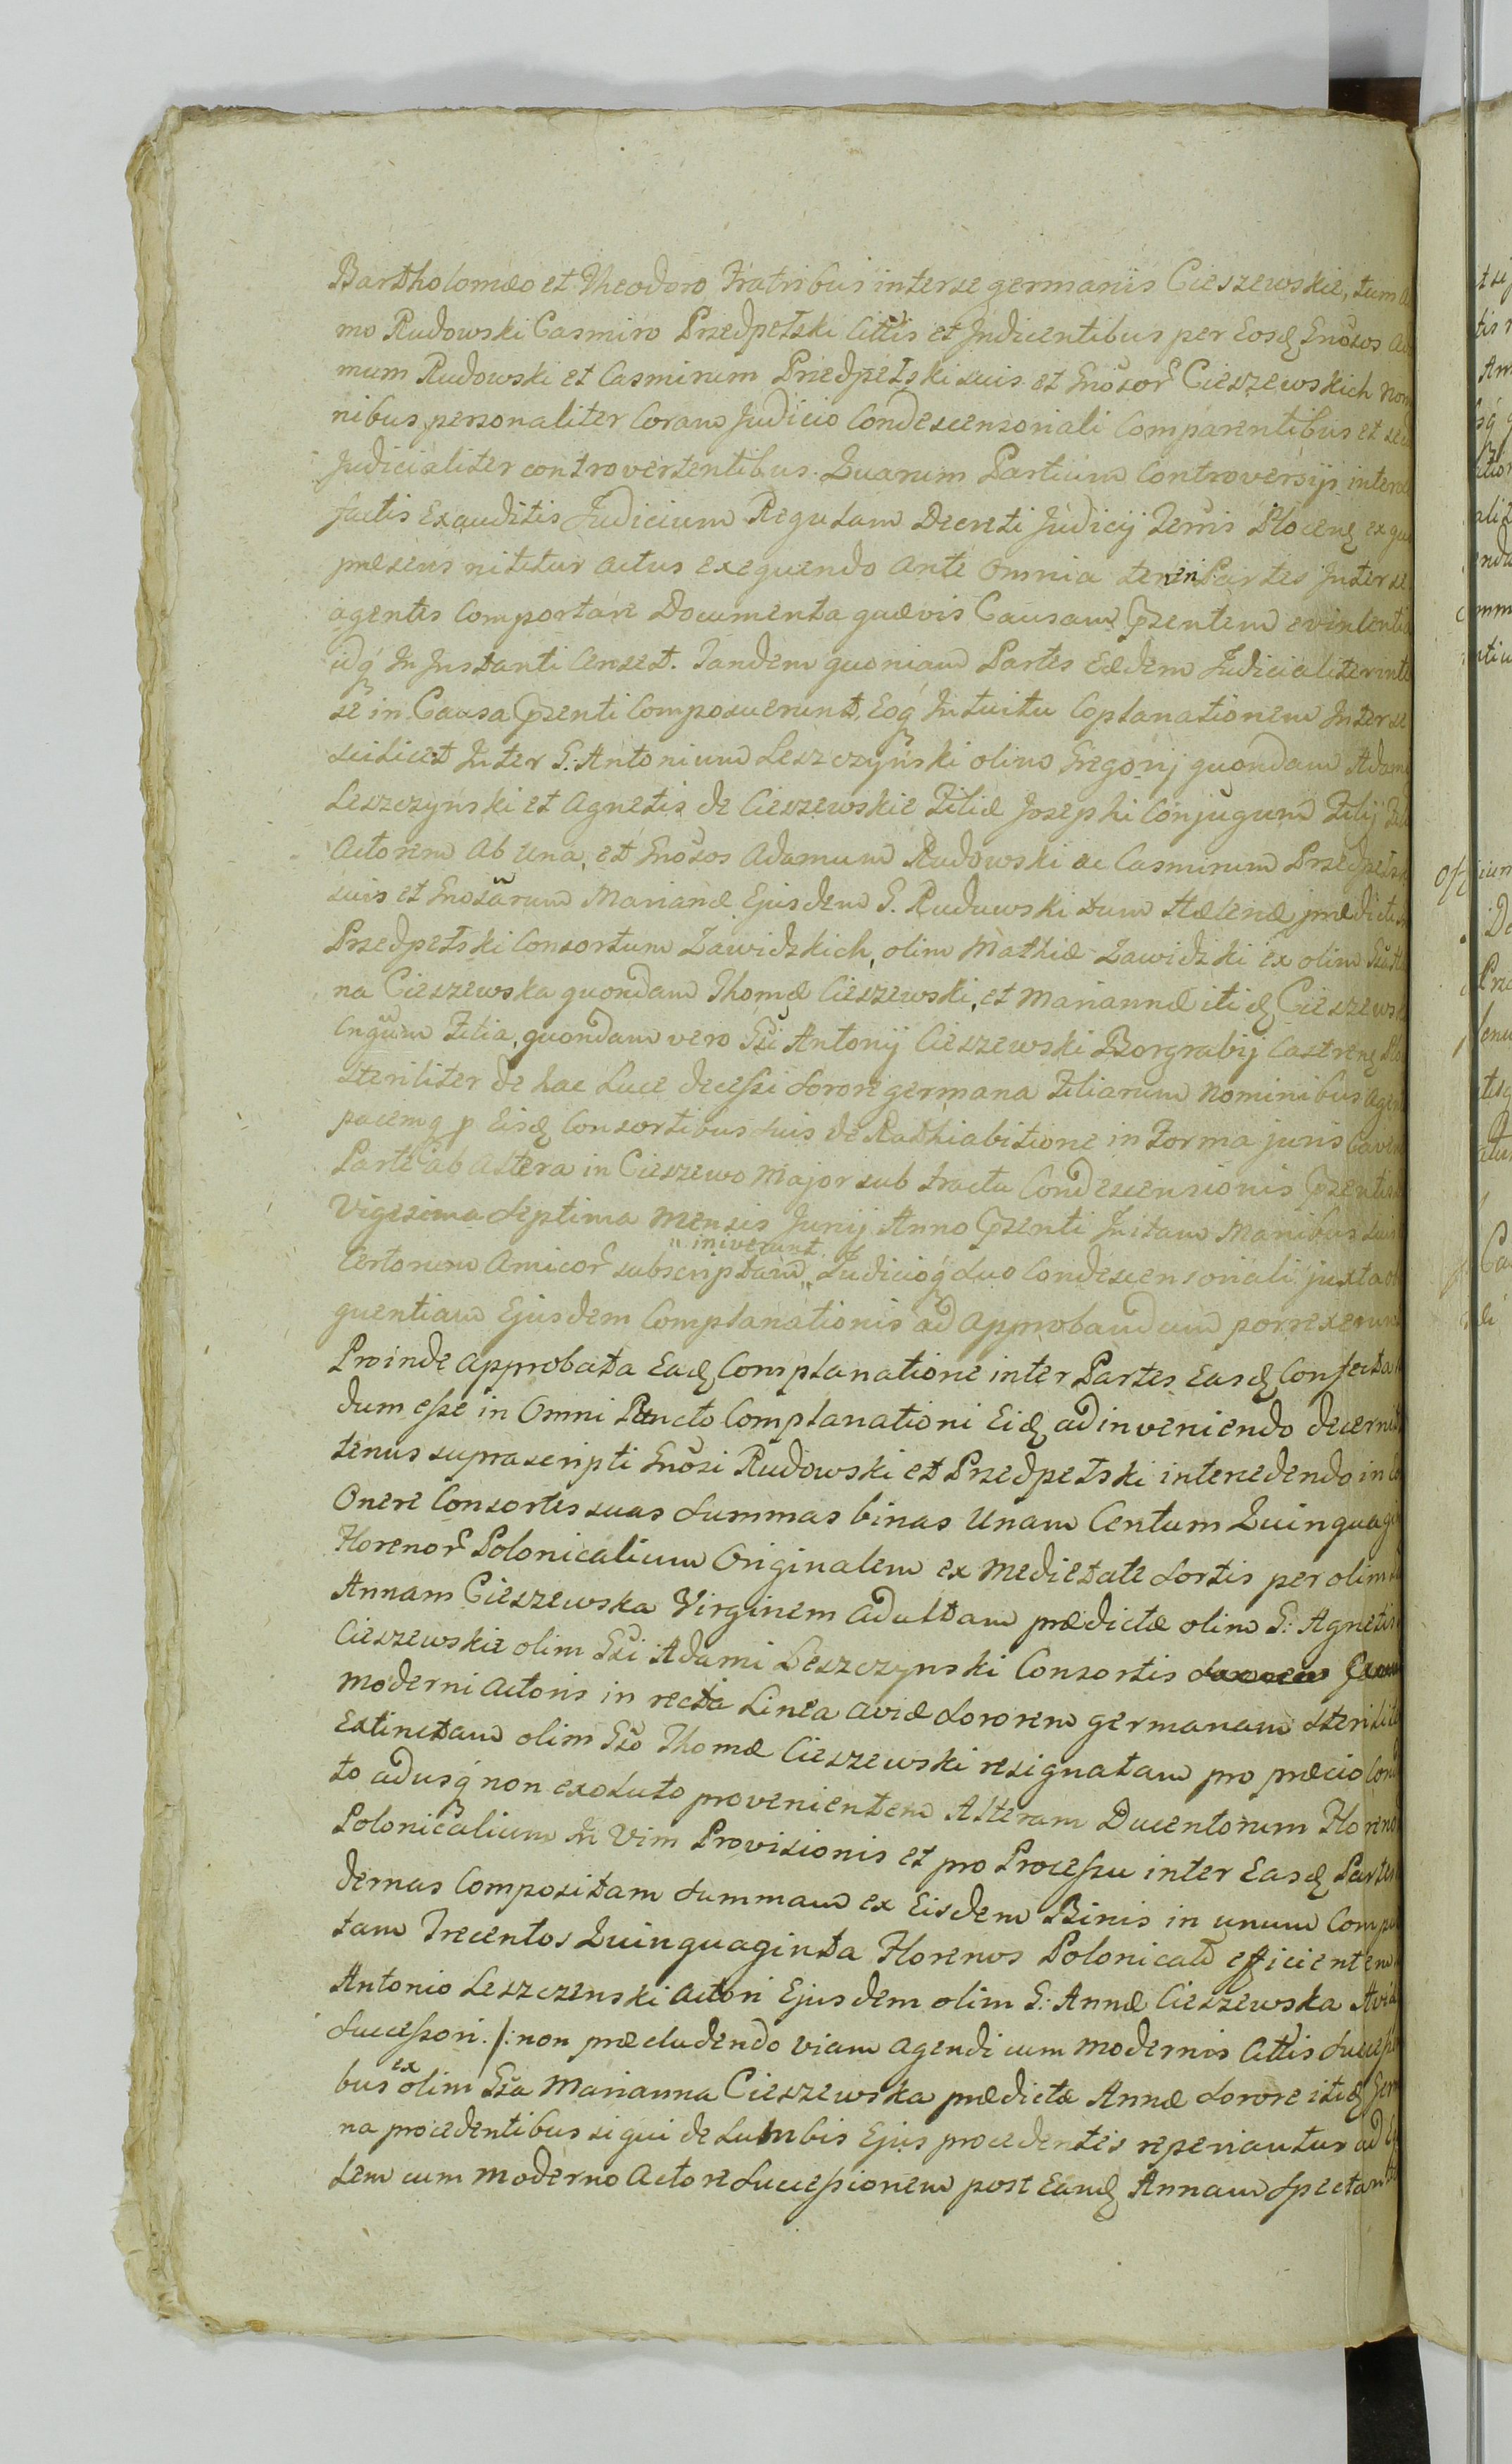 Bartholomæo et Theodoro Fratribus inter se germanis Cieszewskie, tum A
mo Rudowski Casmiro Przedpełski Cittis et Judicentibus per Eosq Gnosos Ad
mum Rudowski et Casmirum Przedpełski suis et Gnosor Cieszewskich nom
nibus personaliter Coram Judicio Condescensoriali Comparentibus et se
Judicialiter controvertentibus. Quarum Partium Controversijs interse
factis Exauditis Judicium Regulam Decreti Judicij Terris Plocens ex quo
præsens nititur actus exequendo ante omnia teneri Partes Inter se
agentes Comportare Documenta quævis Causam Pzentem evinlentia
idq In Instanti Censet. Tandem quoniam Partes Eædem Judicialiter inte
se in Causa Pzenti Composuerunt, Eoq Intuitu Coplanationem Inter se
scilicet Inter G: Antonium Leszczyński olim Gregorij quondam Adami
Leszczyński et Agnetis de Cieszewskie Filiæ Josephi Conjugum Filij Fil
Actorem Ab una, et Gnosos Adamum Rudowski ac Casmirum Przedpełsk
suis et Gnosarum Marianæ Ejusdem G. Rudowski tum Hælenæ prædicti
Przedpełski Consortum Zawidzkich, olim Mathiæ Zawidzki ex olim Gsa
na Cieszewska quondam Thomæ Cieszewski, et Mariannæ itidq Cieszewsk
Cngum Filia, quondam vero Gsi Antonij Cieszewski Borgrabij Castrens Plo
steriliter de hac Luce decessi sorore germana Filiarum nominibus agen
pacemq p Eisdq Consortibus suis de Rathiabitione in Forma juris Caven
Parte ab altera in Cieszewo Major sub tractu Condescensionis Pzentis
Vigesima septima mensis Junij Anno Pzenti Initam Manibus suis
" iniverunt
Certorum Amicor subscriptam " Judicioq suo Condescensoriali juxta
quentiam Ejusdem Complanationis ad Approbandum porrexerunt
Proinde approbata Eadq Complanatione inter Partes Easdq Confecta
dum esse in Omni Puncto Complanationi Eidq adinveniendo decernit
tenus suprascripti Gnosi Rudowski et Przedpełski intercedendo in
Onere Consortes suas summas binas Unam Centum Quinquagi
Florenor Polonicalium Originalem ex Medietate sortis per olim
Annam Cieszewska Virginem adultam prædictæ olim G: Agnetis
Cieszewskie olim Gsi Adami Leszczynski Consortis
moderni Actoris in recta Linea aviæ sororem germanam sterilite
Extinctam olim Gso Thomæ Cieszewski resignatam pro præcio Con
to adusq non exoluto provenientem Alteram Ducentorum Floreno
Polonicalium In Vim Provisionis et pro Processu inter Easdq Partes
dernas Compositam summam ex Eisdem Binis in unum Compu
tam Trecentos Quinquaginta Florenos Polonical efficientem
Antonio Leszczenski Actori Ejusdem olim G: Annæ Cieszewska Aviæ
successori. /: non præcludendo viam agendi cum modernis Cittis success
ex
bus olim Gsa Marianna Cieszewska prædictæ Annæ sorore itidq Ger
na procedentibus si qui de Lumbis Ejus procedentes reperiantur ad
lem cum moderno Actore successionem post Eandq Annam spectant